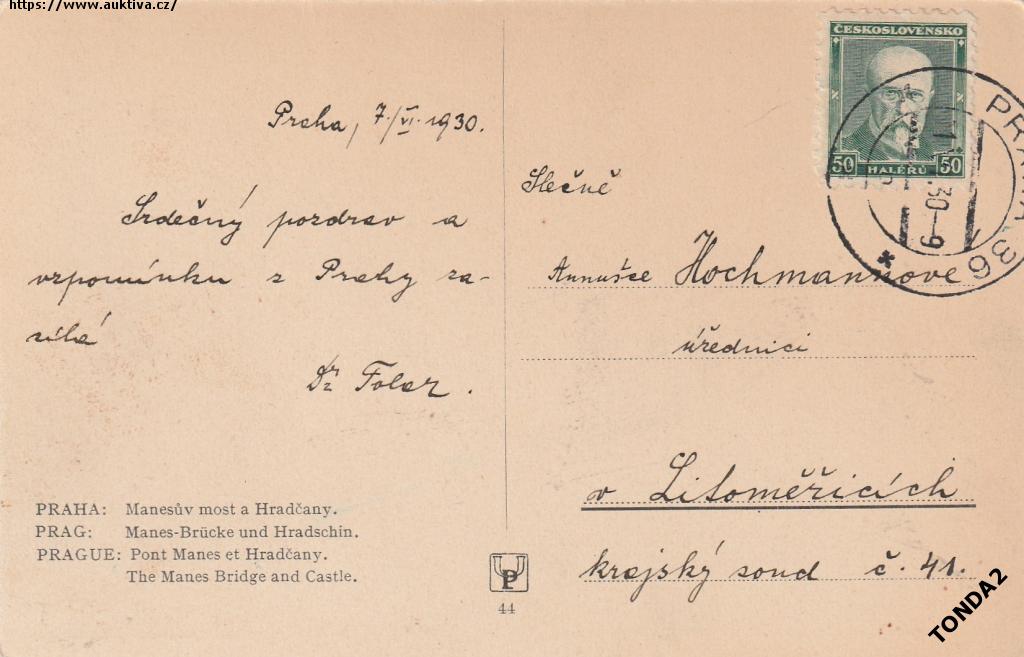 https://www.auktiva.cz/
Praha, 7./VI. 1930.
Srdečný pozdrav a
vzpomínku z Prahy za-
sílá
Dr
PRAHA: Manesův most a Hradčany.
PRAG: Manes-Brücke und Hradschin.
PRAGUE: Pont Manes et Hradčany.
The Manes Bridge and Castle.
44
ČESKOSLOVENSKO
50 HALÉŘŮ 50
PRAHA 36
30-9
Slečně
Annušce Hochmannove
úřednici
v Litoměřicích
krajský soud č. 41.
TONDA2